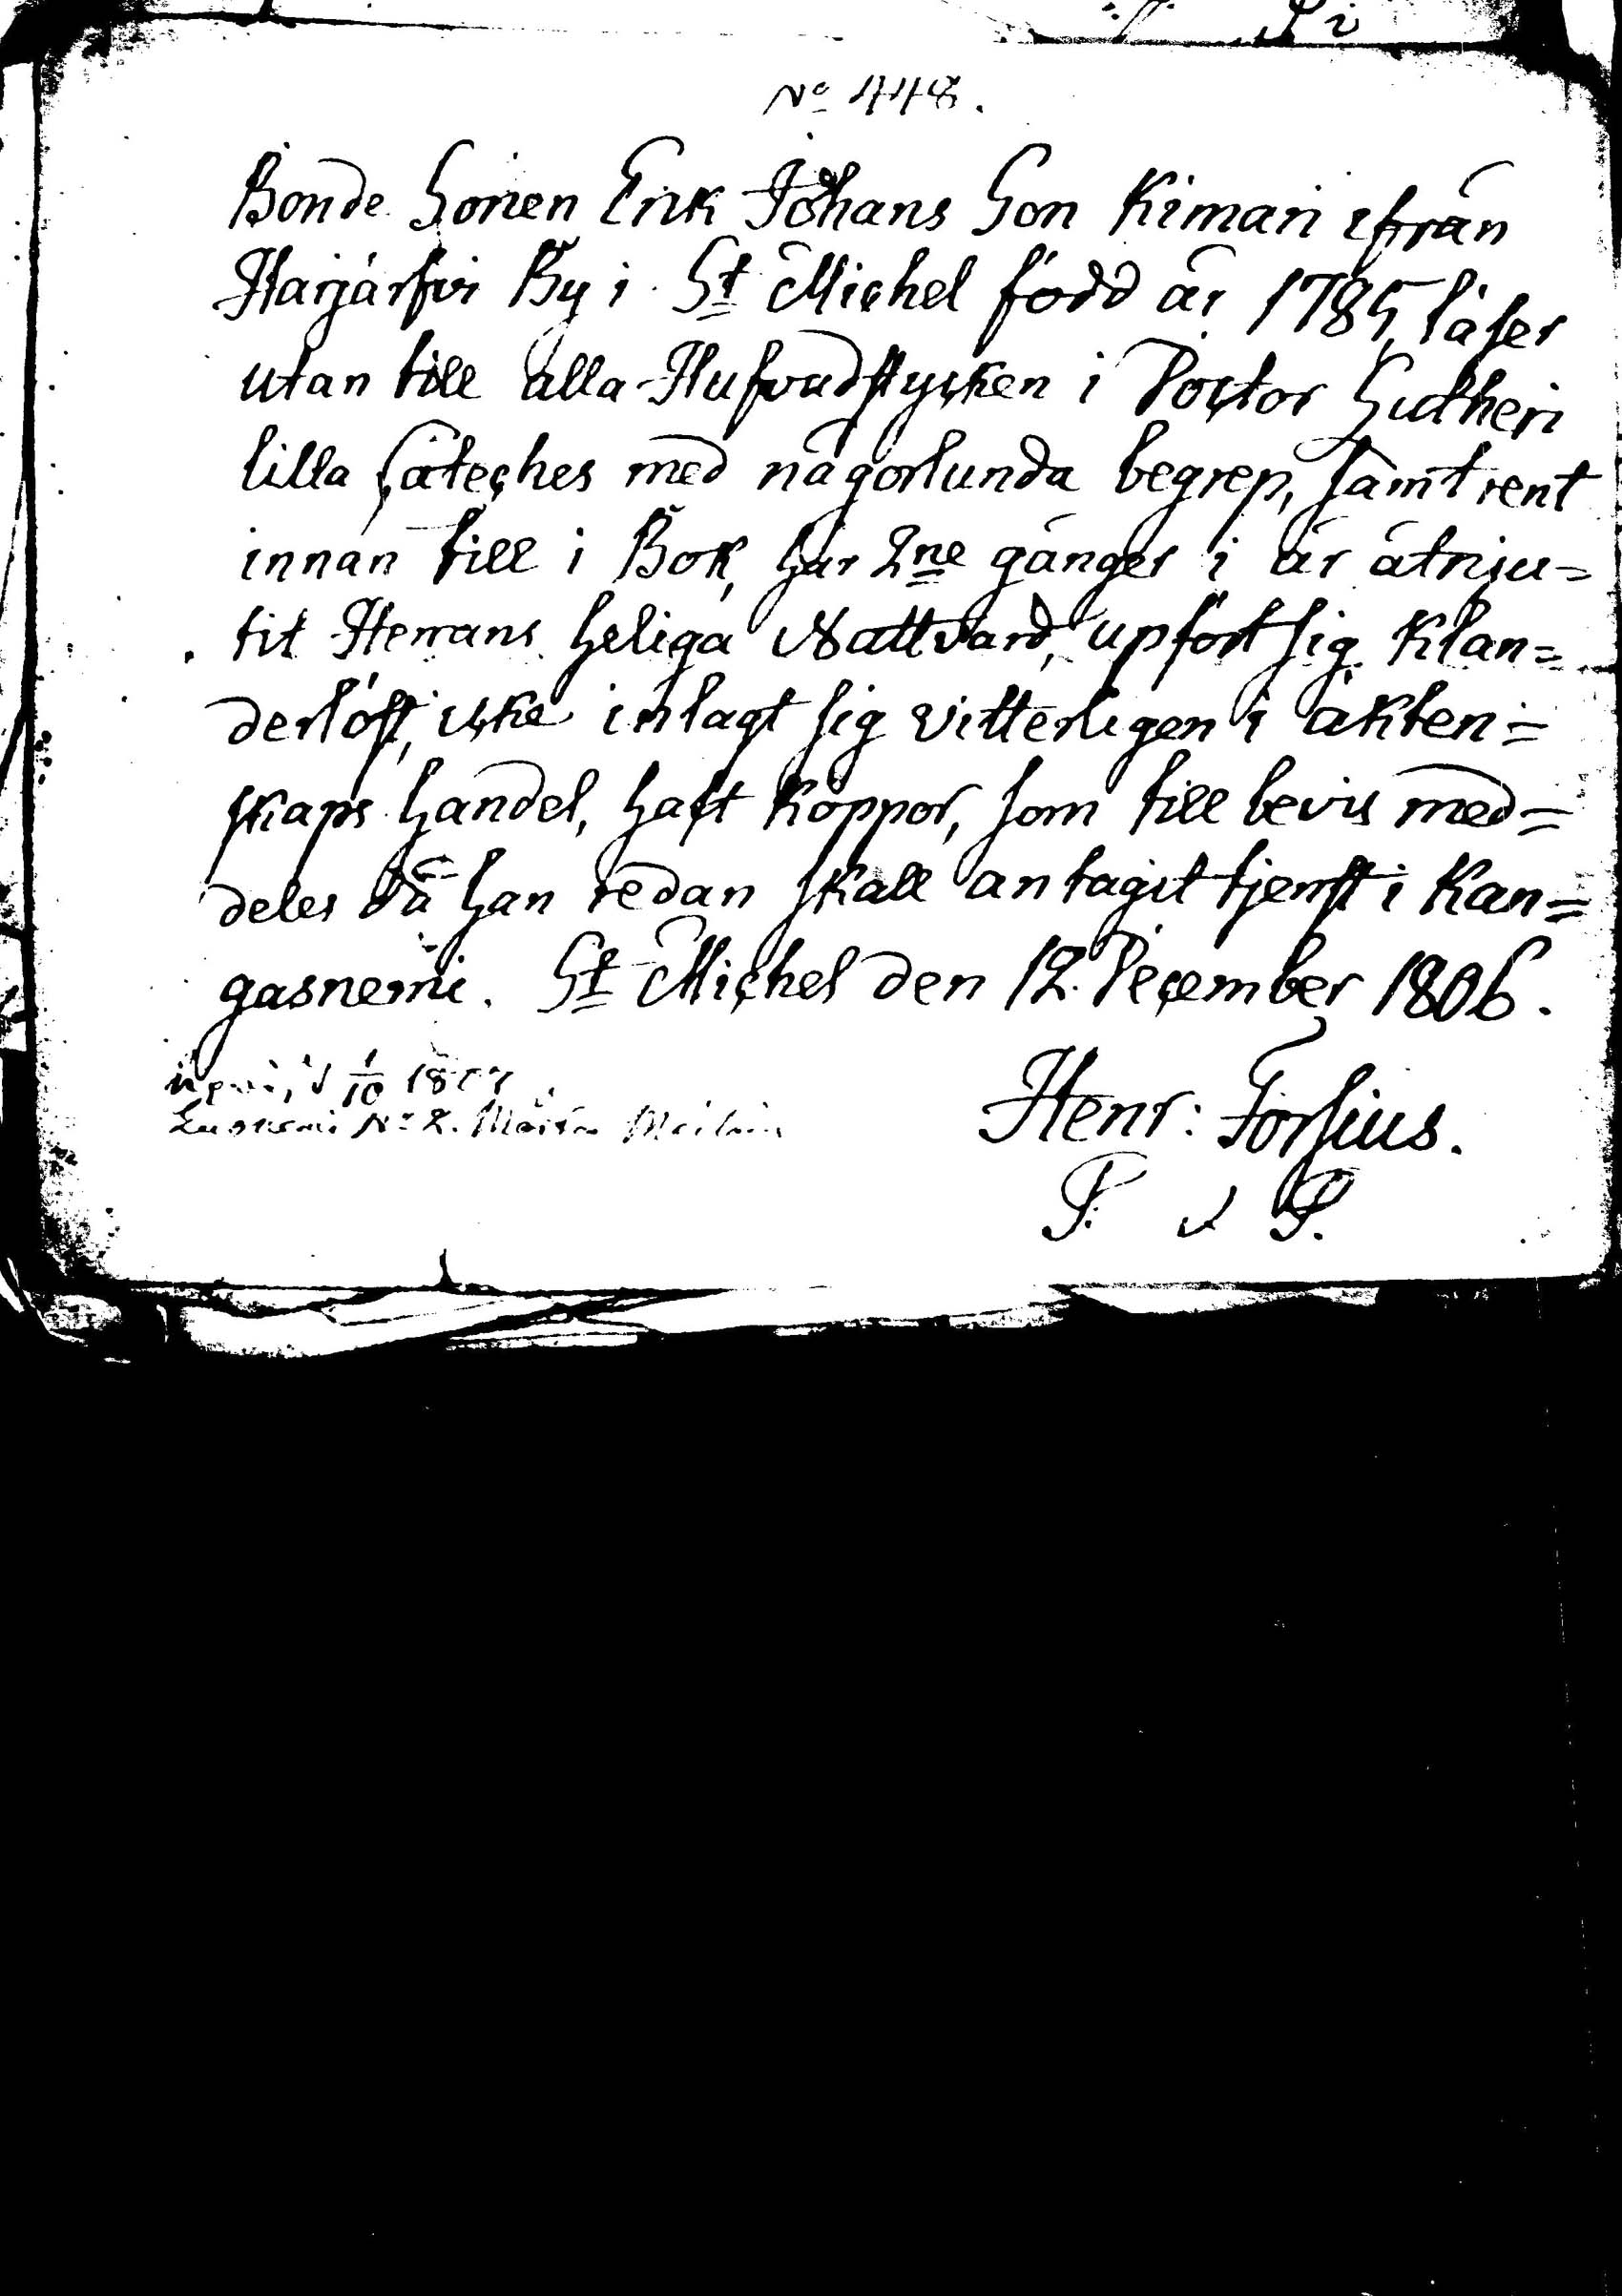 No 448.
Bonde Sonen Erik Johans Son Kimari ifrån
Harjärfvi By i St Michel född år 1785, läser
utan till alla Hufvudstycken i Doctor Lutheri
lilla Cateches med någorlunda begrep, samt rent
innan till i Bok, har 2ne gånger i år åtnju=
tit Herrans heliga Nattvard, upfört sig klan=
derlöst, icke inlagt sig vitterligen i äkten=
skaps handel, haft koppor, som till bevis med=
deles då han redan skall antagit tjenst i Kan=
gasnemi. St Michel den 12 December 1806.
Henr: Forsius.
1/10 1807
No 2.
P. v P.